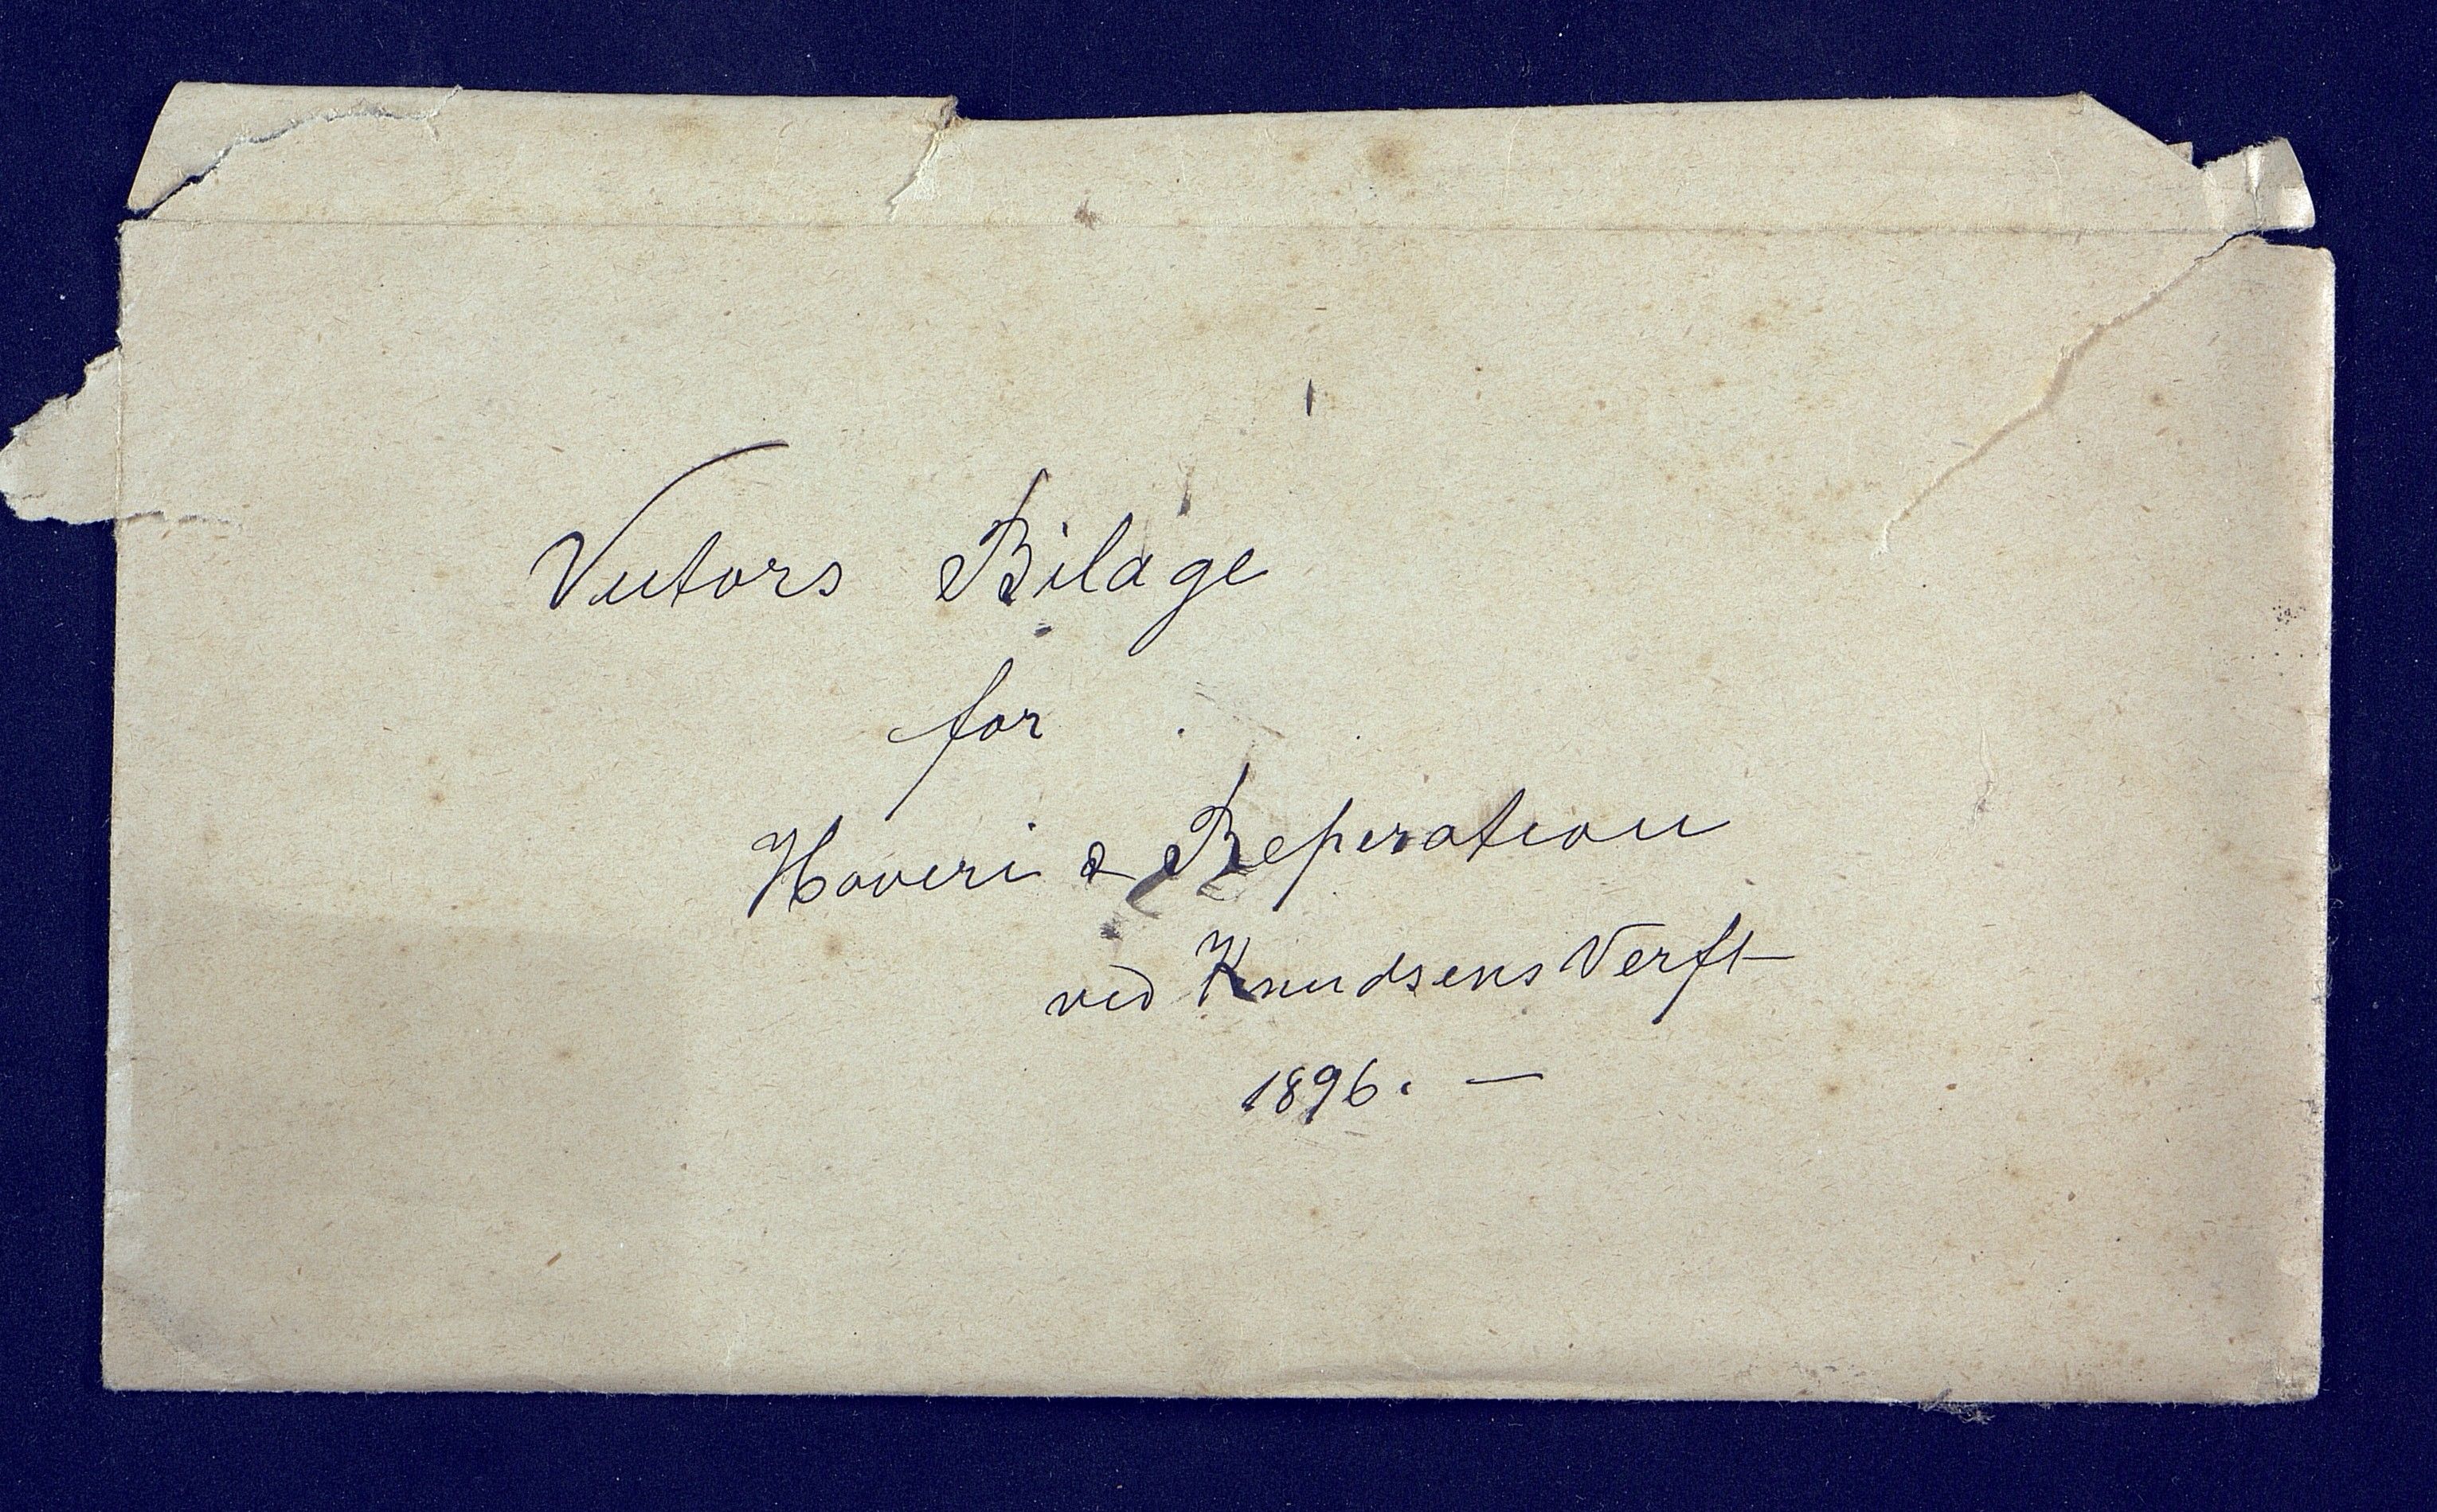 Victors Bilage
for
Haveri & Reperation
ved Knudsens Verft
1896. —